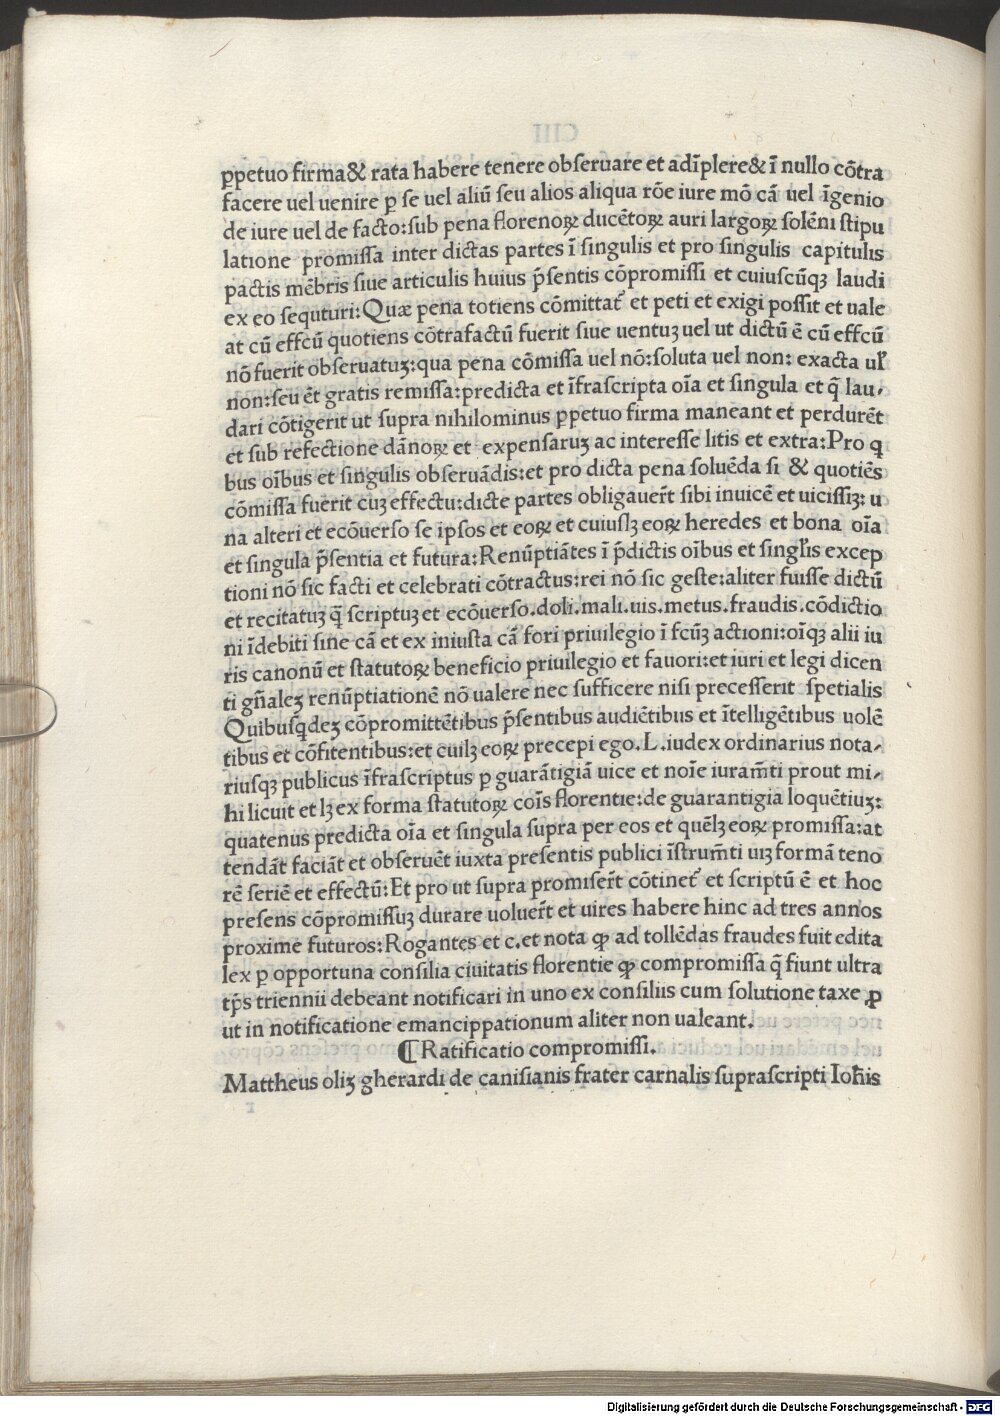 ꝑpetuo firma & rata habere tenere obſeruare et adīplere & ī nullo cōtra
facere uel uenire ꝑ ſe uel aliū ſeu alios aliqua rōe iure mō cā uel īgenio
de iure uel de facto:ſub pena florenoꝝ ducētoꝝ auri largoꝝ ſolēni ſtipu
latione promiſſa inter dictas partes ī ſingulis et pro ſingulis capitulis
pactis mēbris ſiue articulis huius p̄ſentis cōpromiſſi et cuiuſcūqꝫ laudi
ex eo ſequturi:Quæ pena totiens cōmittat᷑ et peti et exigi poſſit et uale
at cū effcū quotiens cōtrafactū fuerit ſiue uentuꝫ uel ut dictū ē cū effcū
nō fuerit obſeruatuꝫ:qua pena cōmiſſa uel nō:ſoluta uel non: exacta ul̛
non:ſeu ēt gratis remiſſa:predicta et īfraſcripta oīa et ſingula et q̄ lau-
dari cōtigerit ut ſupra nihilominus ꝑpetuo firma maneant et perdurēt
et ſub refectione dānoꝝ et expenſaruꝫ ac intereſſe litis et extra:Pro ꝗ
bus oībus et ſingulis obſeruādis:et pro dicta pena ſoluēda ſi & quotiēs
cōmiſſa fuerit cuꝫ effectu:dicte partes obligauer̄t ſibi inuicē et uiciſſiꝫ: u
na alteri et ecōuerſo ſe ipſos et eoꝝ et cuiuſlꝫ eoꝝ heredes et bona oīa
et ſingula p̄ſentia et futura:Renūptiātes ī p̄dictis oībus et ſingl̛is excep
tioni nō ſic facti et celebrati cōtractus:rei nō ſic geſte:aliter fuiſſe dictū
et recitatuꝫ q̄ ſcriptuꝫ et ecōuerſo.doli.mali.uis.metus.fraudis.cōdictio
ni īdebiti ſine cā et ex iniuſta cā fori priuilegio ī fcūꝫ actioni:oīqꝫ alii iu
ris canonū et ſtatutoꝝ beneficio priuilegio et fauori:et iuri et legi dicen
ti gn̄aleꝫ renūptiationē nō ualere nec ſufficere niſi preceſſerit ſpetialis
Quibuſꝗdeꝫ cōpromittētibus p̄ſentibus audiētibus et ītelligētibus uolē
tibus et cōfitentibus:et cuilꝫ eoꝝ precepi ego.L.iudex ordinarius nota-
riuſqꝫ publicus īfraſcriptus ꝑ guarātigiā uice et noīe iuram̄ti prout mi-
hi licuit et lꝫ ex forma ſtatutoꝝ coīs florentie:de guarantigia loquētiuꝫ:
quatenus predicta oīa et ſingula ſupra per eos et quēlꝫ eoꝝ promiſſa:at
tendāt faciāt et obſeruēt iuxta preſentis publici īſtrum̄ti uiꝫ formā teno
rē ſeriē et effectū:Et pro ut ſupra promiſer̄t cōtinet᷑ et ſcriptū ē et hoc
preſens cōpromiſſuꝫ durare uoluer̄t et uires habere hinc ad tres annos
proxime futuros:Rogantes et c.et nota ꝙ ad tollēdas fraudes fuit edita
lex ꝑ opportuna conſilia ciuitatis florentie ꝙ compromiſſa q̄ fiunt ultra
tp̄s triennii debeant notificari in uno ex conſiliis cum ſolutione taxe ꝓ
ut in notificatione emancippationum aliter non ualeant.
⸿ Ratificatio compromiſſi.
Mattheus oliꝫ gherardi de caniſianis frater carnalis ſupraſcripti Ioh̄is
Digitalisierung gefördert durch die Deutsche Forschungsgemeinschaft - DFG